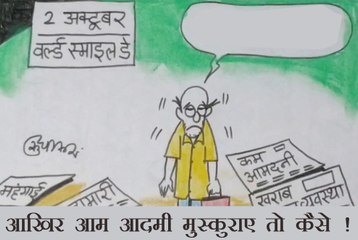 2 अक्टूबर
वर्ल्ड स्माइल डे
कम
आमदनी
महंगाई
खराब
व्यवस्था
आखिर आम आदमी मुस्कुराए तो कैसे !